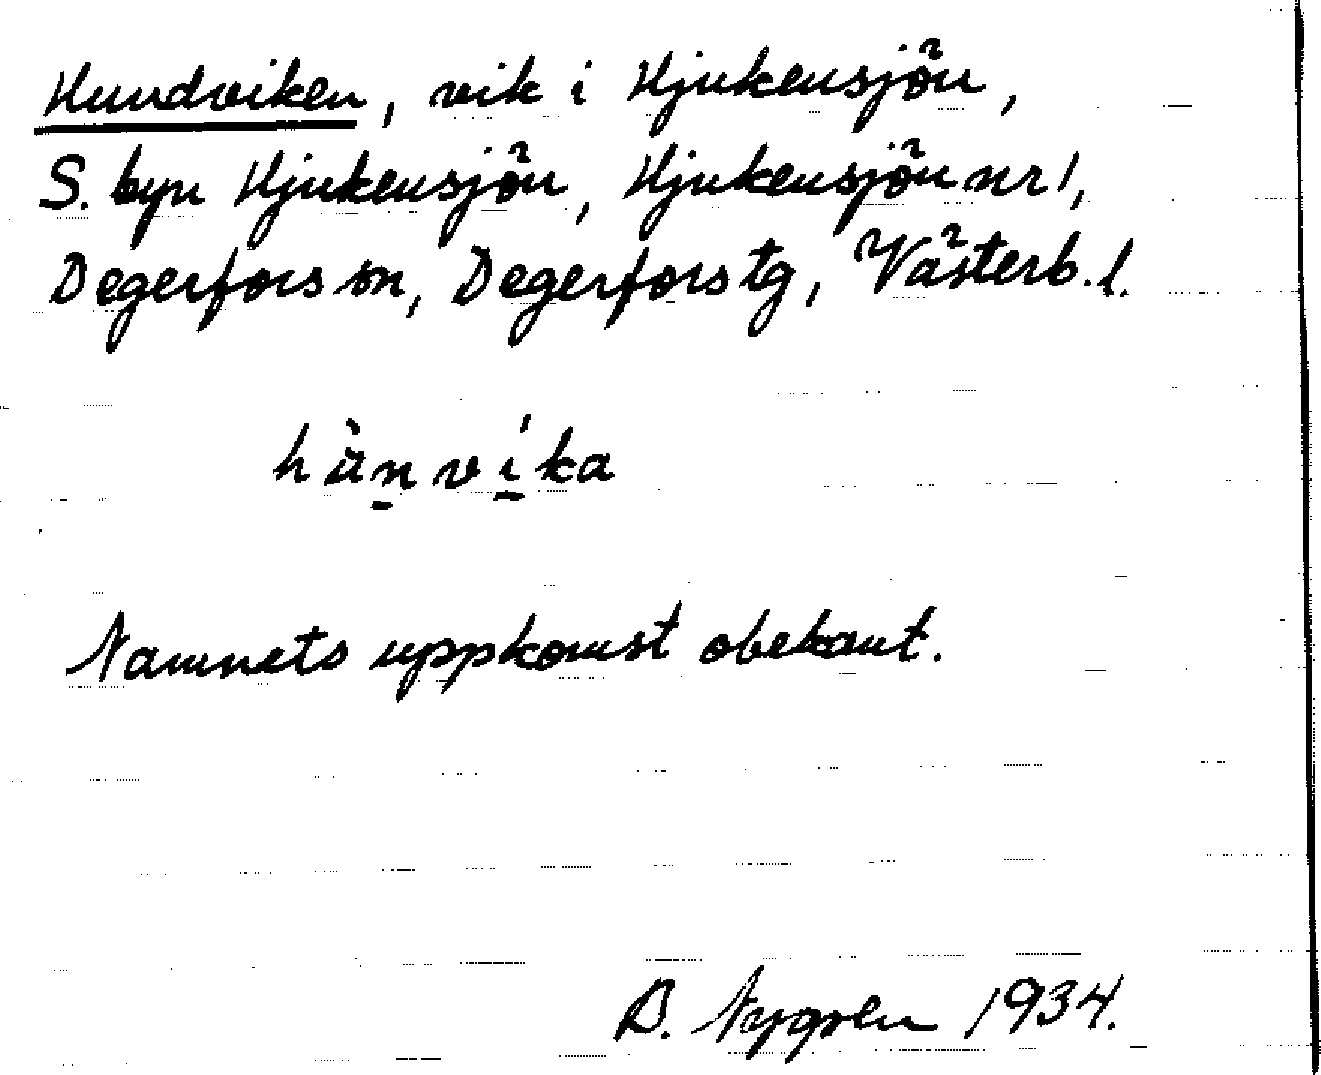 Hundviken, vik i Hjukensjön,
S. byn Hjukensjön, Hjukensjön nr 1,
Degerfors sn, Degerfors tg, Västerb. l.
hùn̲ví̲ka
Namnets uppkomst obekant.
D. Nygren 1934.